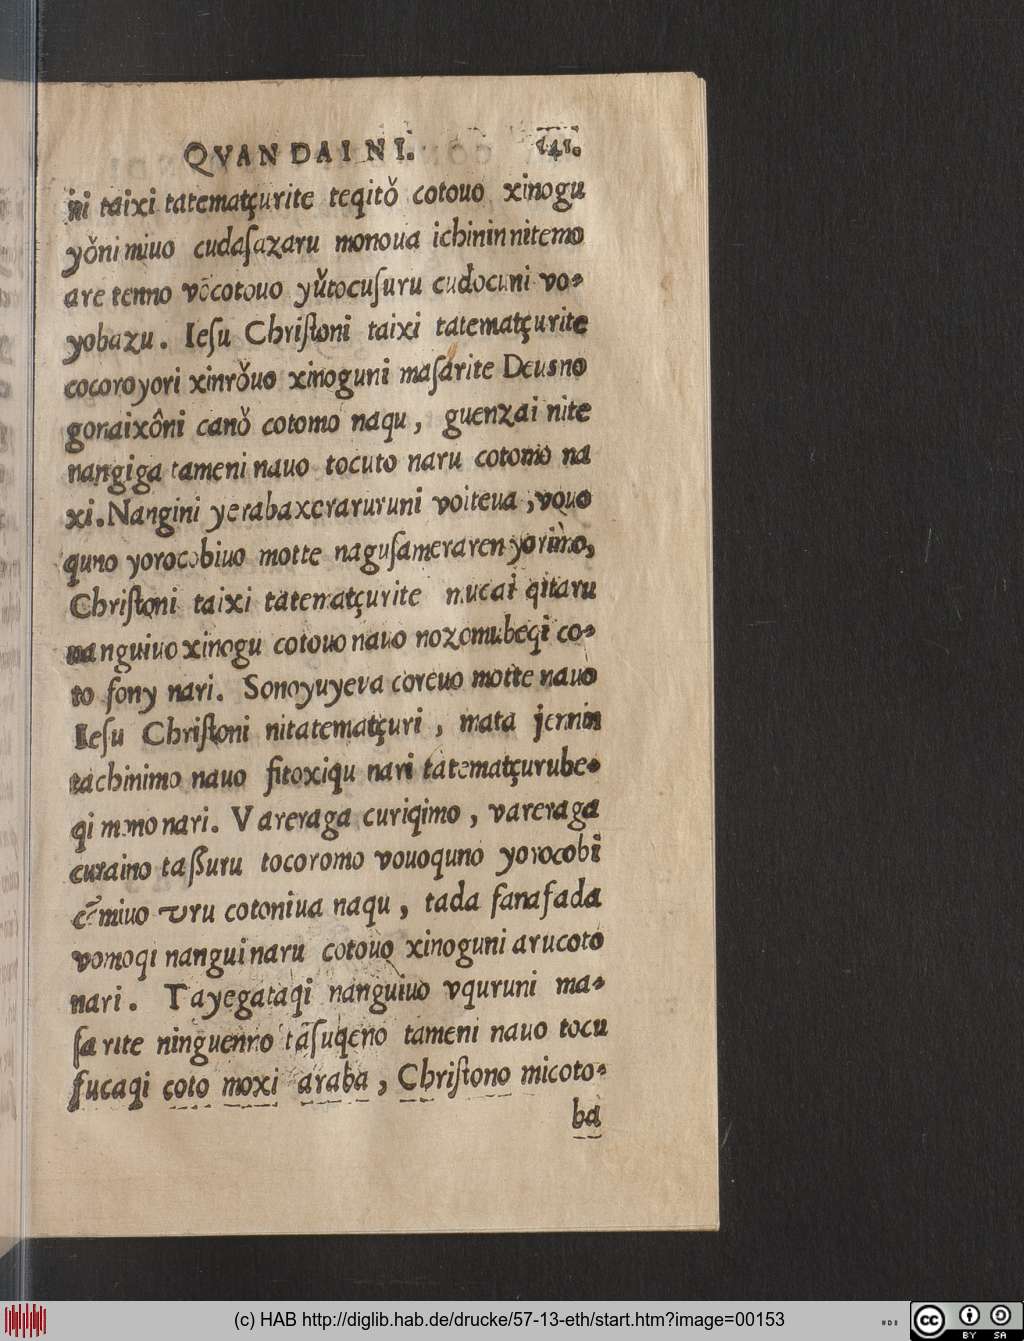 QVAN DAI NI. 141.
ni taixi tatematçurite teqitǒ cotouo xinogu
yǒni miuo cudaſazaru monoua ichinin nitemo
are tenno võcotouo yǔtocuſuru cudocuni vo-
yobazu. Ieſu Chriſtoni taixi tatematçurite
cocoroyori xinrǒuo xinoguni maſarite Deusno
gonaixôni canǒ cotomo naqu, guenzai nite
nangiga tameni nauo tocuto naru cotomo na
xi. Nangini yerabaxeraruruni voiteua, vouo
quno yorocobiuo motte naguſameraren yorimo,
Chriſtoni taixi tatematçurite mucai qitaru
nanguiuo xinogu cotouo nauo nozomubeqi co-
to fony nari. Sonoyuyeua coreuo motte nauo
Ieſu Chriſtoni nitatematçuri, mata jennin
tachinimo nauo fitoxiqu nari tatematçurube-
qi mono nari. Vareraga curiqimo, vareraga
curaino taſſuru tocoromo vouoquno yorocobi
miuo vru cotoniua naqu, tada fanafada
vomoqi nanguinaru cotouo xinoguni arucoto
nari. Tayegataqi nanguiuo vquruni ma-
ſarite ninguenno tãſuqeno tameni nauo tocu
fucaqi coto moxi araba, Chriſtono micoto-
ba
(c) HAB http://diglib.hab.de/drucke/57-13-eth/start.htm?image=00153
cc BY SA